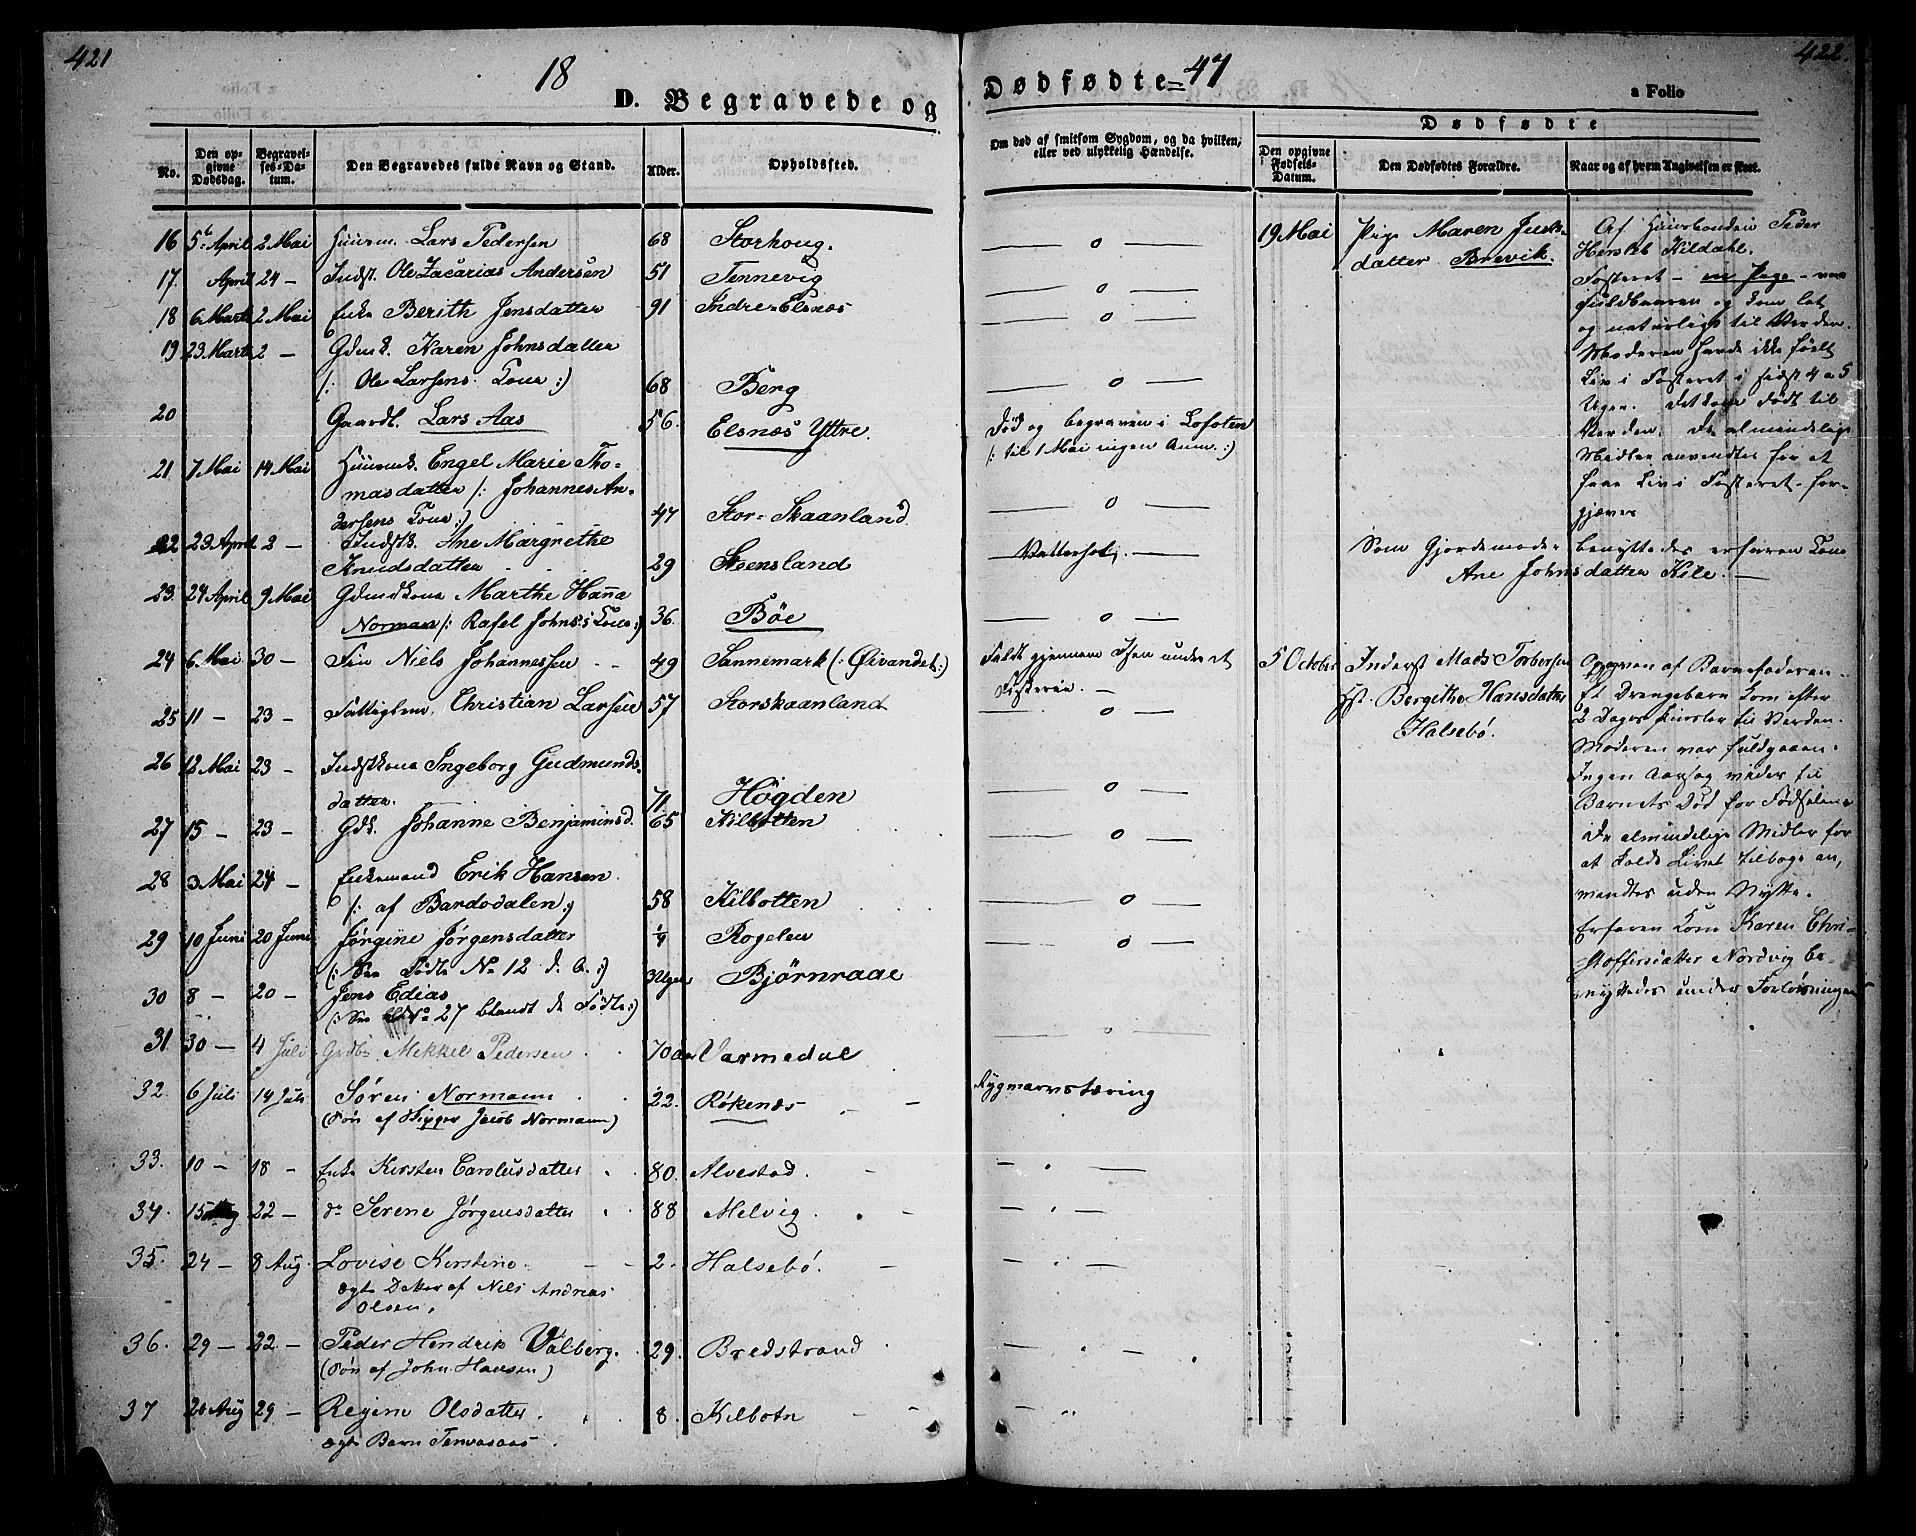 421
18
D. Begravede og
No.
Den opgivne Dødsdag.
Begravelses-Datum.
Den Begravedes fulde Navn og Stand.
Alder.
Opholdssted.
16 5te April 2 Mai Huusm. Lars Pedersen 68 Storhoug.
17. April 24 — Indst. Ole Zacarias Andersen 51 Tennevig
18 6 Marts 2 Mai Enke Berith Jensdatter 91 Indre-Elsnæs
19 23 Marts 2 — Gdmk. Karen Johnsdatter
(: Ole Larsens Kone :) 68 Berg
20 Gaardb. Lars Aas 56. Elsnæs Yttre.
21 7 Mai 14 Mai Huusmk. Engel Marie Tho-
masdatter (: Johannes An-
dersens Kone :) 47 Stor-Skaanland
22 23 April 2 — Indstk. Ane Margrethe
Knudsdatter 29 Steensland
23. 24 April 9 Mai Gdmdskone Marthe Hanna
Norman (: Rafel Johns's Kone :) 36. Bøe
24 6 Mai 30 — Fin Niels Johannessen 49 Sannemark (: Øivandet :)
25 11 — 23 — Fattiglem Christian Larsen 57 Storskaanland
26 12 Mai 23 — Indstkone Ingeborg Gudmunds-
datter. 71 Høgden
27 15 — 23 — Gdk. Johanne Benjaminsd. 65 Kilbotten
28 3 Mai 24 — Enkemand Erik Hansen
(: af Bardodalen :) 58 Kilbotten
29 10 Juni 20 Juni Jørgine Jørgensdatter 1/4 Rogelen
(: See Fødte No 12 d. A. :)
30 8 — 20 — Jens Edias 3 Uger Bjørnraae
(: See No 27 blandt de Fødte :)
31. 30 — 4 Juli Grdbr. Mekkel Pedersen 70 aar Varmedal
32. 6 Juli 14 Juli Søren Normann 22. Røkenæs
(Søn af Skipper Jacob Normann)
33. 10 — 18 — Enke Kirsten Carolusdatter 80. Alvestad.
34. 15 22 — do Serene Jørgensdatter 88 Melvig.
35. 24 — 8 Aug. Lovise Kirstine 2. Halsebø.
ægte Datter af Nils Andreas
Olsen.
36. 29 — 22 — Peder Hendrik Valberg. 29. Bredstrand
(Søn af John Hansen)
37 20 Aug 29 — Regine Olsdatter 8. Kilbotn
ægte Barn
422.
Dødfødte 47
a Folio
Om død af smitsom Sygdom, og da hvilken, eller ved ulykkelig Hændelse.
Dødfødte
Den opgivne Fødsels-Datum.
Den Dødfødtes Forældre.
Naar og af hvem Angivelsen er skeet.
Død og begraven i Lofoten
(: til 1 Mai ingen Anm. :)
Vattersot.
Faldt gjennem Isen under et
Fiskerie.
Rygmarvstæring
19 Mai Pige Maren
datter Brevik.
Af Huusbonden Peder
Kildahl.
Fosteret — en Pige — var
fuldbaaren og kom let
og naturligt til Verden.
Moderen havde ikke følt
Liv i Fosteret i sidst 4 a 5
Uger. Det kom dødt til
Verden. De almindelige
Midler anvendtes for at
faae Liv i Fosteret for-
gjæves
Som Gjordemoder benyttedes erfaren Kone
Ane Johnsdatter Kile. —
5 October Inderst Mads Torbersen
Hst. Bergithe Hansdatter
Halsebø.
Opgiven af Barnefaderen.
Et Drengebarn kom efter
2 Dages til Verden.
Moderen var fuldgaaen.
Ingen Aarsag vides til
Barnets Død før Fødselen.
De almindelige Midler for
at kalde Livet tilbage an-
vendtes uden Nytte.
Erfaren Kone Karen Chri-
stoffersdatter Nordvig be-
nyttedes under Forløsningen